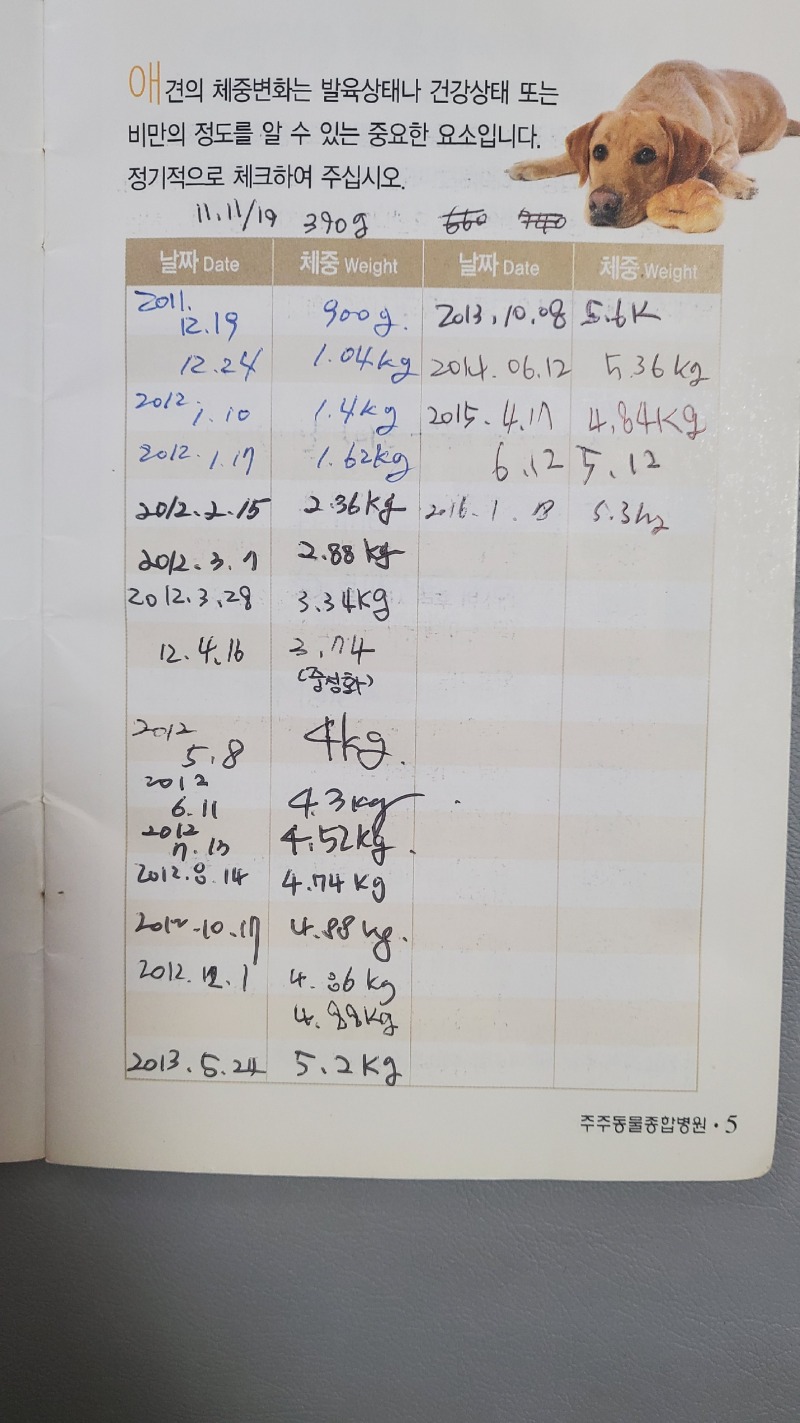 애견의 체중변화는 발육상태나 건강상태 또는
비만의 정도를 알 수 있는 중요한 요소입니다.
정기적으로 체크하여 주십시오.
11.11/19 390g 660 740
날짜 Date 체중 Weight 날짜 Date 체중 Weight
2011.
12.19 900g. 2013.10.08 5.6K
12.24 1.04kg 2014.06.12 5.36kg
2012.
1.10 1.4kg 2015.4.17 4.84Kg
2012.1.17 1.62kg 6.12 5.12
2012.2.15 2.36kg 2016.1.18 5.3kg
2012.3.7 2.88kg
2012.3.28 3.34Kg
12.4.16 3.74
(중성화)
2012
5.8 4kg.
2012
6.11 4.3kg
2012
7.13 4.52kg.
2012.8.14 4.74Kg
2012.10.17 4.88kg.
2012.12.1 4.86kg
4.88kg
2013.5.24 5.2Kg
주주동물종합병원 • 5